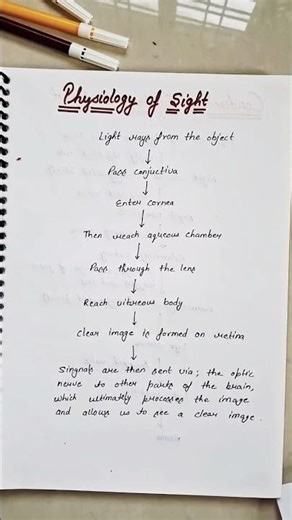 Physiology of Sight
Light rays from the object
Pass conjuctiva
Enter cornea
Then reach aqueous chamber
Pass through the lens
Reach vitreous body
Clear image is formed on retina
Singnals are then sent via; the optic
nerve to other parts of the brain,
which ultimately processes the image
and allows us to see a clear image.